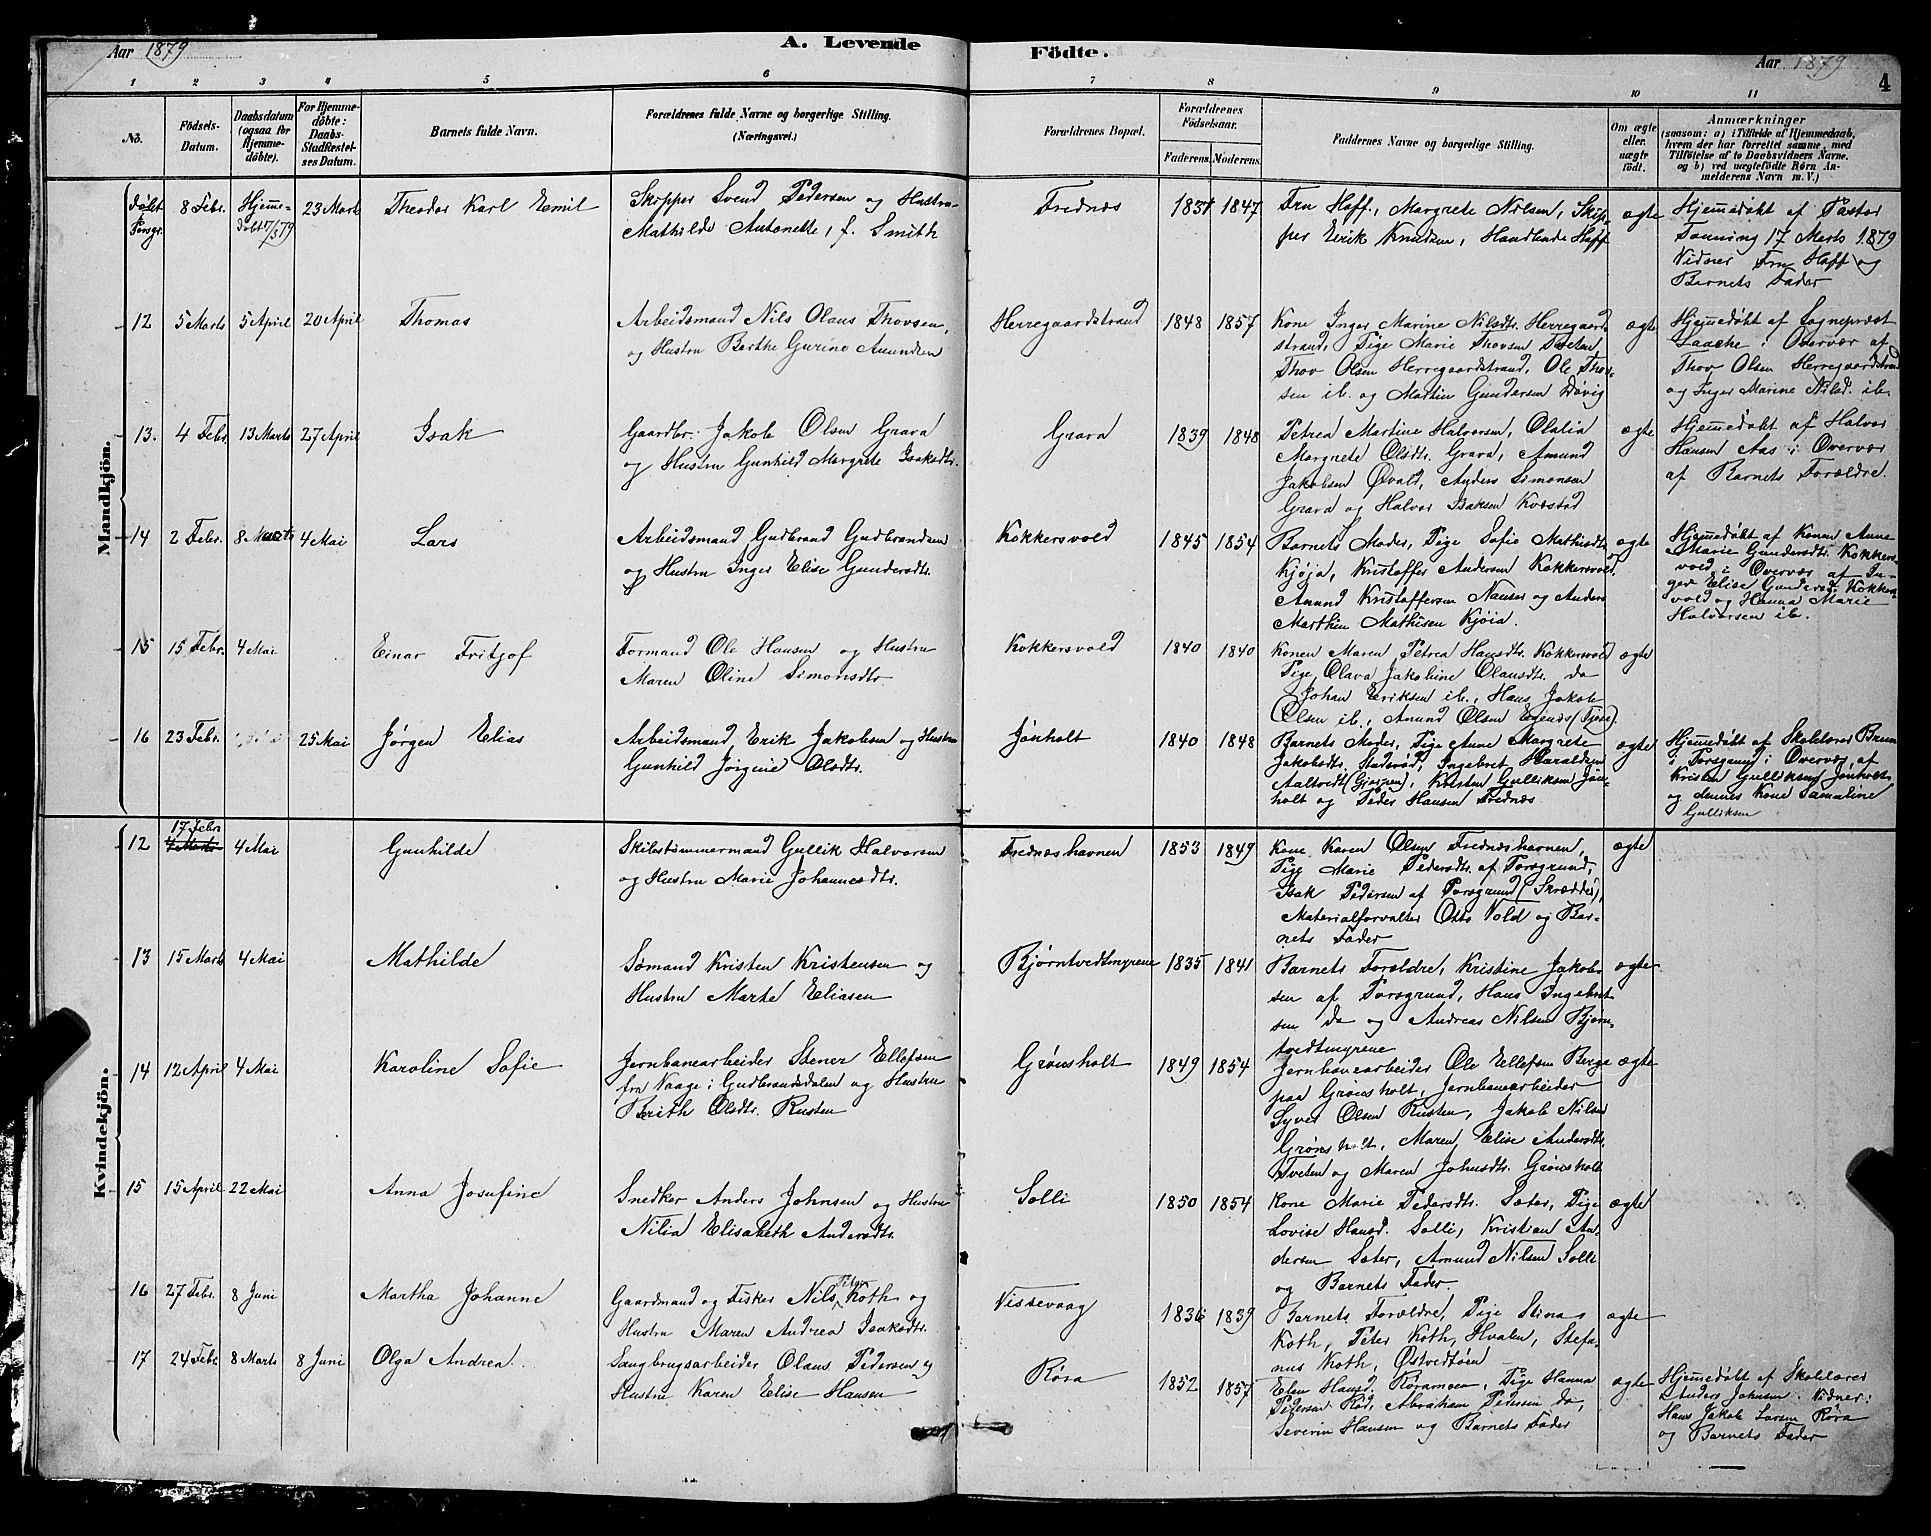 Aar 1879
A. Levende
Födte.
Aar 1879
4
1 2 3 4 5 6 7 8 9 10 11
No.
Födsels-
Datum.
Daabsdatum
(ogsaa for
Hjemme-
döbte).
For Hjemme-
döbte:
Daabs-
Stadfæstel-
ses Datum.
Barnets fulde Navn.
Forældrenes fulde Navne og borgerlige Stilling.
(Næringsvei.)
Forældrenes Bopæl.
Forældrenes
Födselsaar.
Faderens.
Moderens.
Faddernes Navne og borgerlige Stilling.
Om ægte
eller
uægte
födt.
Anmærkninger
(saasom: a) i Tilfælde af Hjemmedaab,
hvem der har forrettet samme, med
Tilföielse af to Daabsvidners Navne.
og b) ved uægtefödte Börn An-
melderens Navn m. V.)
Mandkjön.
Døbt
Porsgr.
8 Febr.
Hjemme-
døbt 17/3 79
23 Marts
Theodor Karl Emil
Skipper Svend Pedersen og Hustru
Mathilde Antonette, f. Smith
Frednæs
1831 1847
Fru Haff, Margrete Nilsen, Skip-
per Eirik Knudsen, Handlende Haff
ægte
Hjemmedøbt af Pastor
Tønning 17 Marts 1879
Vidner Fru Haff og
Barnets Fader
12
5 Marts
5 April
20 April
Thomas
Arbeidsmand Nils Olaus Thovsen,
og Hustru Berthe Gurine Amundsen
Herregaardstrand
1848 1857
Kone Inger Marine Nilsdtr. Herregaard-
strand, Pige Marie Thovsen Tveten,
Thov Olsen Herregaardstrand, Ole Thov-
sen ib. og Martin Gundersen Døvig
ægte
Hjemmedøbt af Sogneprest
Laache i Overvær af
Thov Olsen Herregaardstrand
og Inger Marine Nilsd. ib.
13.
4 Febr.
13 Marts
27 April
Isak
Gaardbr. Jakob Olsen Grava
og Hustru Gunhild Margrete Isaksdtr.
Grava
1839 1848
Petrea Martine Halvorsen, Olalia
Margrete Olsdtr. Grava, Amund
Jakobsen Øvald, Anders Simonsen
Grava og Halvor Isaksen Kvæstad
ægte
Hjemmedøbt af Halvor
Hansen Aas i Overvær
af Barnets Forældre.
14
2 Febr.
8 Marts
4 Mai
Lars
Arbeidsmand Gudbrand Gudbrandsen
og Hustru Inger Elise Gundersdtr.
Kokkersvold
1845 1854
Barnets Moder, Pige Sofie Mathisdtr.
Kjøja, Kristoffer Andersen Kokkersvold,
Amund Kristoffersen Nauser og Anders
Marthin Mathisen Kjøia.
ægte
Hjemmedøbt af Konen Anne
Marie Gundersdtr. Kokkers-
vold i Overvær af In-
ger Elise Gundersd. Kokkers-
vold og Hanna Marie
Halvorsen ib.
15
15 Febr.
4 Mai
Einar Fritjof
Formand Ole Hansen og Hustru
Maren Oline Simonsdtr.
Kokkersvold
1840 1840
Konen Maren Petrea Hansdtr. Kokkersvold
Pige Olava Jakobine Olausdtr. do
Johan Eriksen ib., Hans Jakob
Olsen ib., Amund Olsen
ægte
16
23 Febr.
25 Mai
Jørgen Elias
Arbeidsmand Erik Jakobsen og Hustru
Gunhild Jørgine Olsdtr.
Jønholt
1840 1848
Barnets Moder, Pige Anne Margrete
Jakobsdtr. Stulevold, Ingebret Haraldsen
Aaltvedt (Gjerpen), Kristen Gulliksen Jøn-
holt og Peder Hansen Frednæs
ægte
Hjemmedøbt af Skolelærer Bruun
i Porsgrund i Overvær af
Kristen Gulliksen Jønholt
og dennes Kone Samaline
Gulliksen
Kvindekjön.
12
17 Febr.
4 Marts
4 Mai
Gunhilde
Skibstømmermand Gullik Halvorsen
og Hustru Marie Johannesdtr.
Frednæshavnen
1853 1849
Kone Karen Olsen Frednæshavnen,
Pige Marie Pedersdtr. af Porsgrund,
Isak Pedersen af Porsgrund (Skrædder),
Materialforvalter Otto Vold og Bar-
nets Fader
ægte
13
15 Marts
4 Mai
Mathilde
Sømand Kristen Kristensen og
Hustru Marte Eliasen
Bjørntvedtmyrene
1835 1841
Barnets Forældre, Kristine Jakob-
sen af Porsgrund, Hans Ingebret-
sen do og Andreas Nilsen Bjørn-
tvedtmyrene
ægte
14
12 April
4 Mai
Karoline Sofie
Jernbanearbeider Stener Ellefsen
fra Vaage i Gudbrandsdalen og Hustru
Berith Olsdtr. Rusten
Grønsholt
1849 1854
Jernbanearbeider Ole Ellefsen Berge
paa Grønsholt, Jernbanearbeider
Syver Olsen Rusten, Jakob Nilsen
Grønsholt, Maren Elise Andersdtr.
Tveten og Maren Johnsdtr. Grønsholt
ægte
15
15 April
22 Mai
Anna Josefine
Snedker Anders Johnsen og Hustru
Nilia Elisabeth Andersdtr.
Solli
1850 1854
Kone Marie Pedersdtr. Sæter, Pige
Lovise Hansd. Solli, Kristian An-
dersen Sæter, Amund Nilsen Solli
og Barnets Fader.
ægte
16
27 Febr.
8 Juni
Martha Johanne
Gaardmand og Fisker Nils Peter Koth og
Hustru Maren Andrea Isaksdtr.
Vissevaag
1836 1839
Barnets Forældre, Pige Stina
Koth, Peter Koth, Hvalen, Stefa-
nus Koth, Østvedtøen
ægte
17
24 Febr
8 Marts
8 Juni
Olga Andrea.
Saugbrugsarbeider Olaus Pedersen og
Hustru Karen Elise Hansen
Røra
1852 1857
Elen Hansd. Røramoen, Pige Hanna
Pedersen Rød, Abraham Pedersen do,
Severin Hansen og Barnets Fader
ægte
Hjemmedøbt af Skolelærer
Anders Johnsen. Vidner:
Hans Jakob Larsen Røra
og Barnets Fader